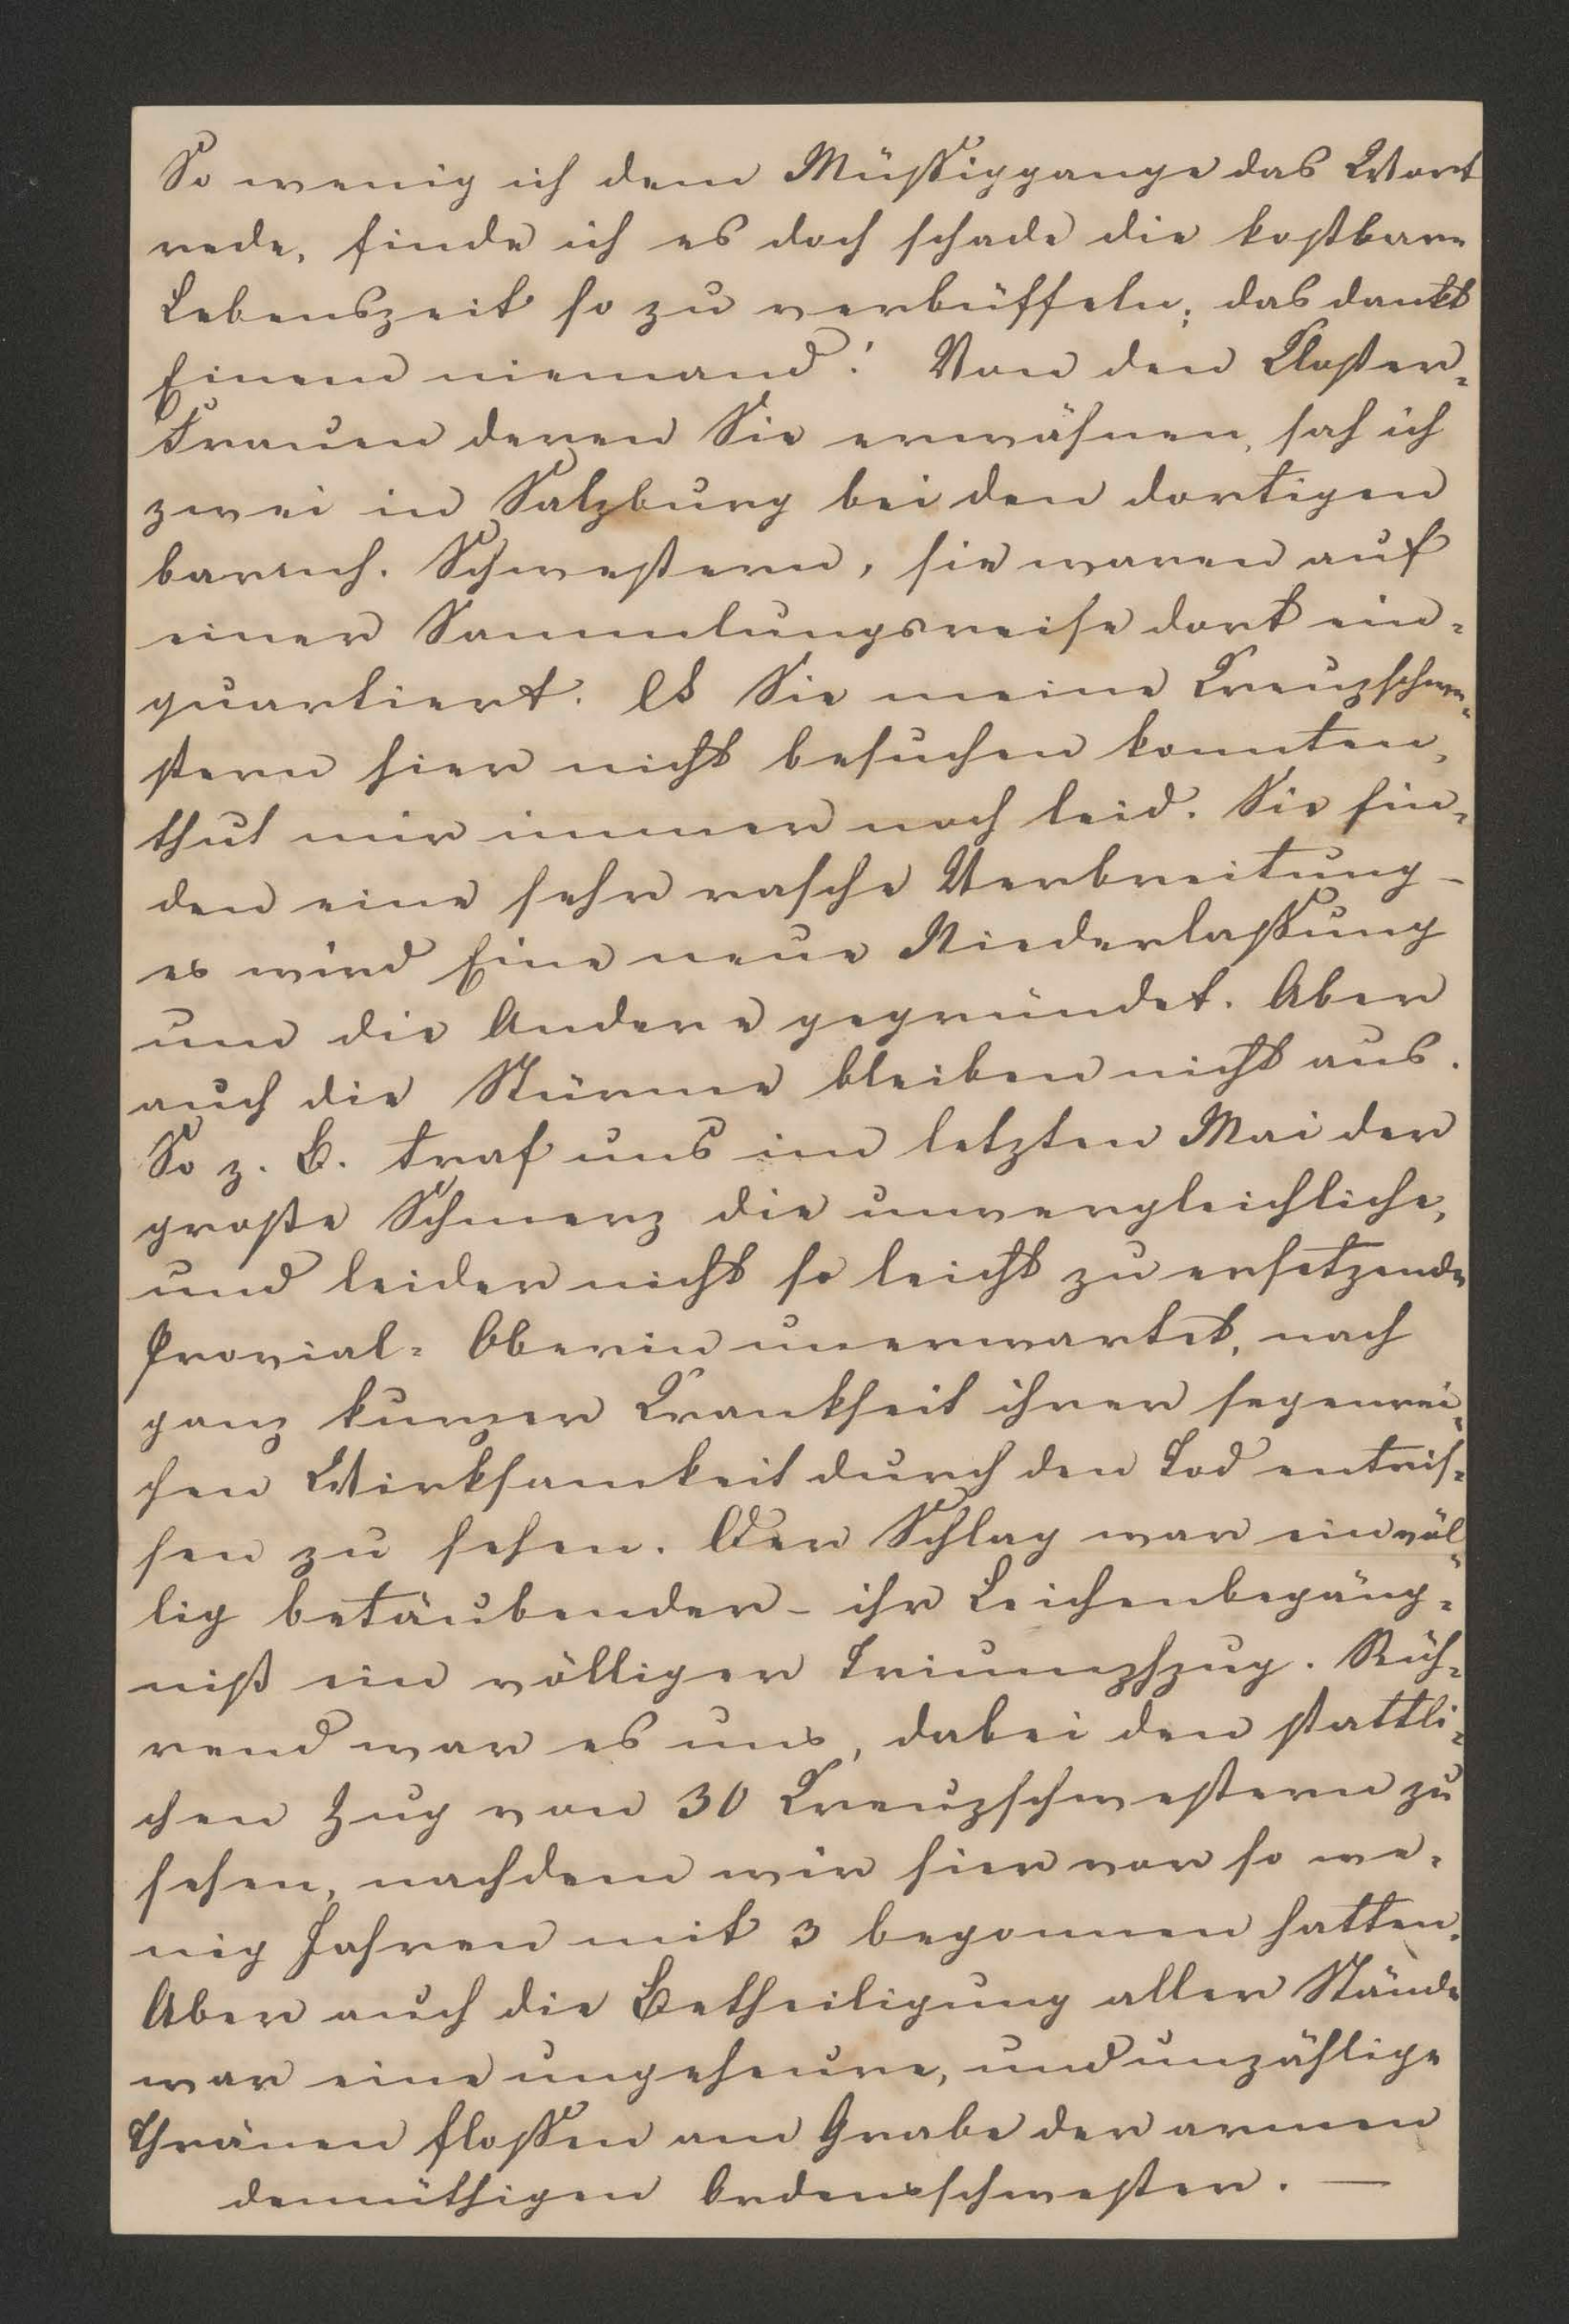 So wenig ich dem Müssiggange das Wort
rede, finde ich es doch schade die kostbare
Lebenszeit so zu verbüffeln; das dankt
Einem niemand! Von den Closter-
Frauen deren Sie erwähnen, sah ich
zwei in Salzburg bei den dortigen
barmh. Schwestern, sie waren auf
einer Sammlungsreise dort ein-
quartiert. Es Sie meine Creuzschwe-
stern hier nicht besuchen konnten,
thut mir immer noch leid. Sie fin-
den eine sehr rasche Verbreitung –
es wird Eine neue Niederlassung
um die Andere gegründet. Aber
auch die Stürme bleiben nicht aus.
So z. B. traf uns im letzten Mai der
große Schmerz die unvergleichliche,
und leider nicht so leicht zu ersetzende
Provial-Oberin unerwartet, nach
ganz kurzer Krankheit ihrer segenrei-
chen Wirksamkeit durch den Tod entris-
sen zu sehen. Der Schlag war ein völ-
lig betäubender – ihr Leichenbegäng-
niß ein völliger Triumphzug. Rüh-
rend war es uns, dabei den stattli-
chen Zug von 30 Creuzschwestern zu
sehen, nachdem wir hier vor so we-
nig Jahren mit 3 begonnen hatten.
Aber auch die Betheiligung aller Stände
war eine ungeheure, und unzählige
Thränen flossen am Grabe der armen
demüthigen Ordensschwester. —